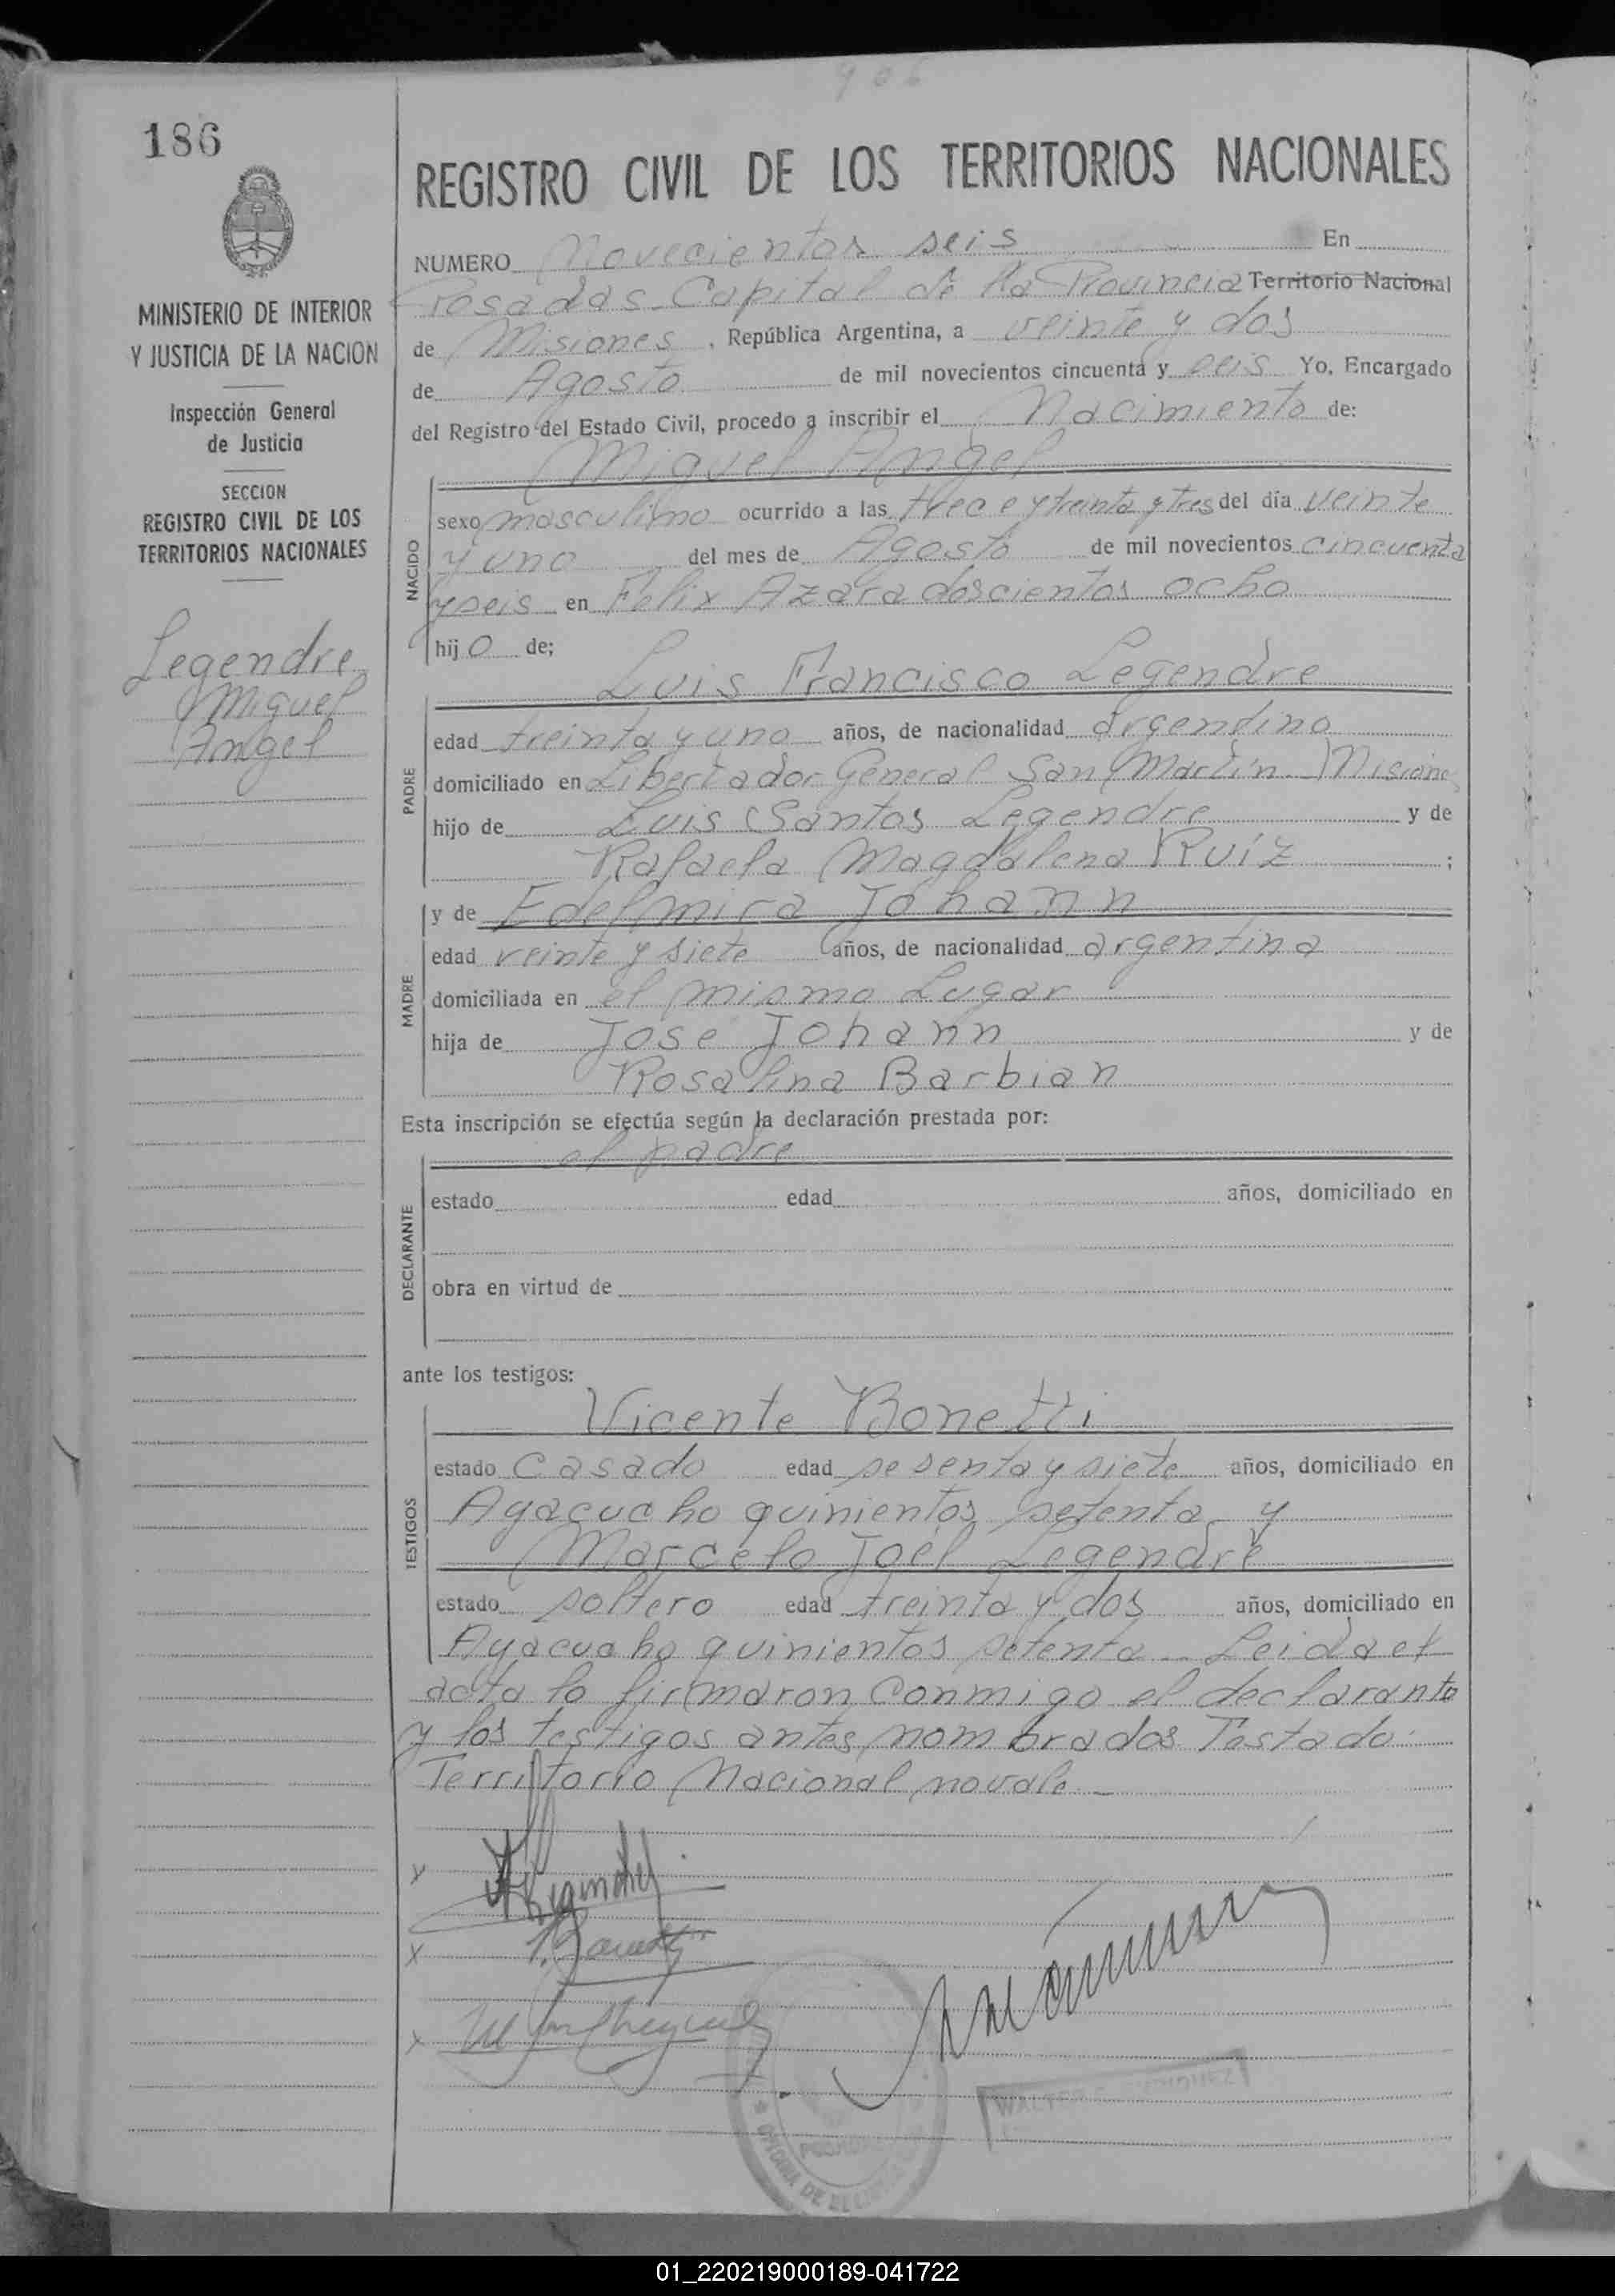 906
186
REGISTRO CIVIL DE LOS TERRITORIOS NACIONALES
MINISTERIO DE INTERIOR
Y JUSTICIA DE LA NACION
Inspección General
de Justicia
SECCION
REGISTRO CIVIL DE LOS
TERRITORIOS NACIONALES
Legendre
Miguel
Angel
NUMERO Novecientos seis En
Posadas Capital de la Provincia Territorio Nacional
de Misiones, República Argentina, a veinte y dos
de Agosto de mil novecientos cincuenta y seis Yo, Encargado
del Registro del Estado Civil, procedo a inscribir el Nacimiento de:
Miguel Angel
NACIDO
sexo masculino ocurrido a las trece y treinta y tres del día veinte
y uno del mes de Agosto de mil novecientos cincuenta
y seis en Felix Azara doscientos ocho
hijo de;
Luis Francisco Legendre
PADRE
edad treinta y uno años, de nacionalidad argentino
domiciliado en Libertador General San Martín Misiones
hijo de Luis Santos Legendre y de
Rafaela Magdalena Ruíz ;
y de Edelmira Johann
MADRE
edad veinte y siete años, de nacionalidad argentina
domiciliada en el mismo Lugar
hija de Jose Johann y de
Rosalina Barbian
Esta inscripción se efectúa según la declaración prestada por:
el padre
DECLARANTE
estado edad años, domiciliado en
obra en virtud de
ante los testigos:
Vicente Bonetti
TESTIGOS
estado Casado edad sesenta y siete años, domiciliado en
Ayacucho quinientos setenta y
Marcelo Joel Legendre
estado soltero edad treinta y dos años, domiciliado en
Ayacucho quinientos setenta - Leida el
acta la firmaron conmigo el declarante
y los testigos antes nombrados Testado:
Territorio Nacional no vale -
x
x
x
OFICINA DE
01_220219000189-041722